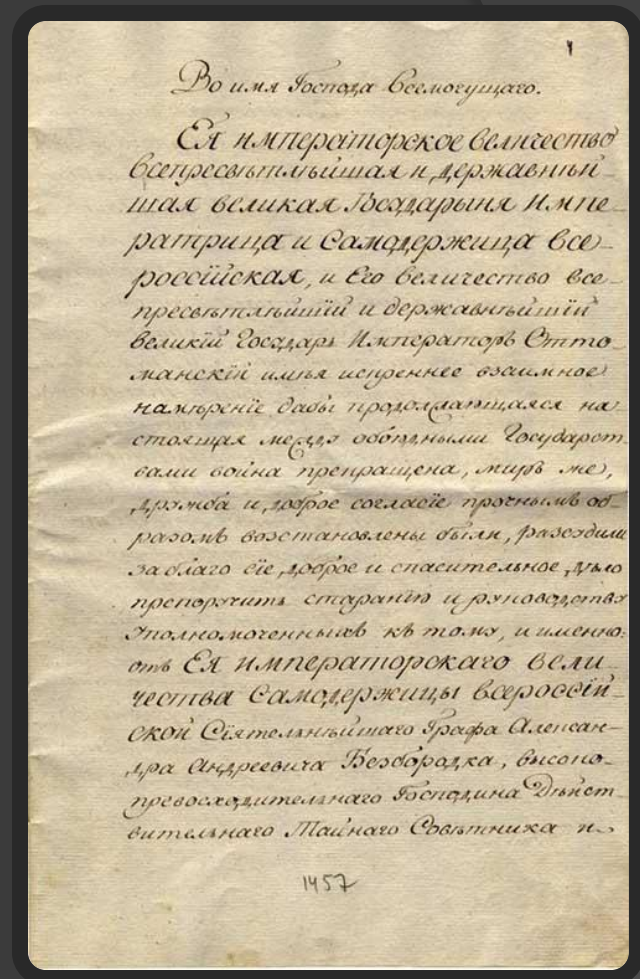 1
Во имя Господа Всемогущаго.
Ея императорское величество
всепресвѣтлѣйшая и державнѣй-
шая великая Государыня Импе-
ратрица и Самодержица Все-
россійская, и Его величество все-
пресвѣтлѣйшій и державнѣйшій
великій Государь Императоръ Отто-
манскій имѣя искреннее взаимное
намѣреніе дабы продолжающаяся на-
стоящая между обоюдными Государст-
вами война прекращена, миръ же,
дружба и доброе согласіе прочнымъ об-
разомъ возстановлены были, разсудили
за благо сіе доброе и спасительное дѣло
препоручить старанію и руководству
уполномоченныхъ къ тому, и именно:
отъ Ея императорскаго вели-
чества Самодержицы всероссій-
ской Сіятельнѣйшаго Графа Алексан-
дра Андреевича Безбородка, высоко-
превосходительнаго Господина Дѣйст-
вительнаго Тайнаго Совѣтника и
1457